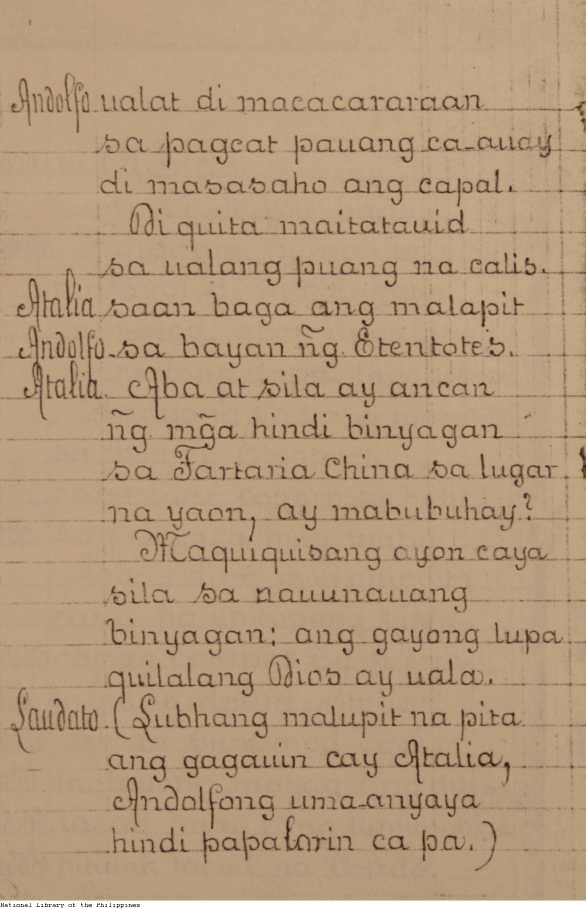 Andolfo ualat di macacararaan
sa pagcat pauang ca-auay
di masasaho ang capal.
Di quita maitatauid
sa ualang puang na calis.
Atalia saan baga ang malapit
Andolfo. sa bayan ñg Etentotes.
Atalia. Aba at sila ay ancan
ñg mg̃a hindi binyagan
sa Tartaria China sa lugar
na yaon, ay mabubuhay?
Maquiquisang ayon caya
sila sa nauunauang
binyagan: ang gayong lupa
quilalang Dios ay uala.
Laudato. (Lubhang malupit na pita
ang gagauin cay Atalia,
Andolfong uma-anyaya
hindi papalorin ca pa.)
National Library of the Philippines